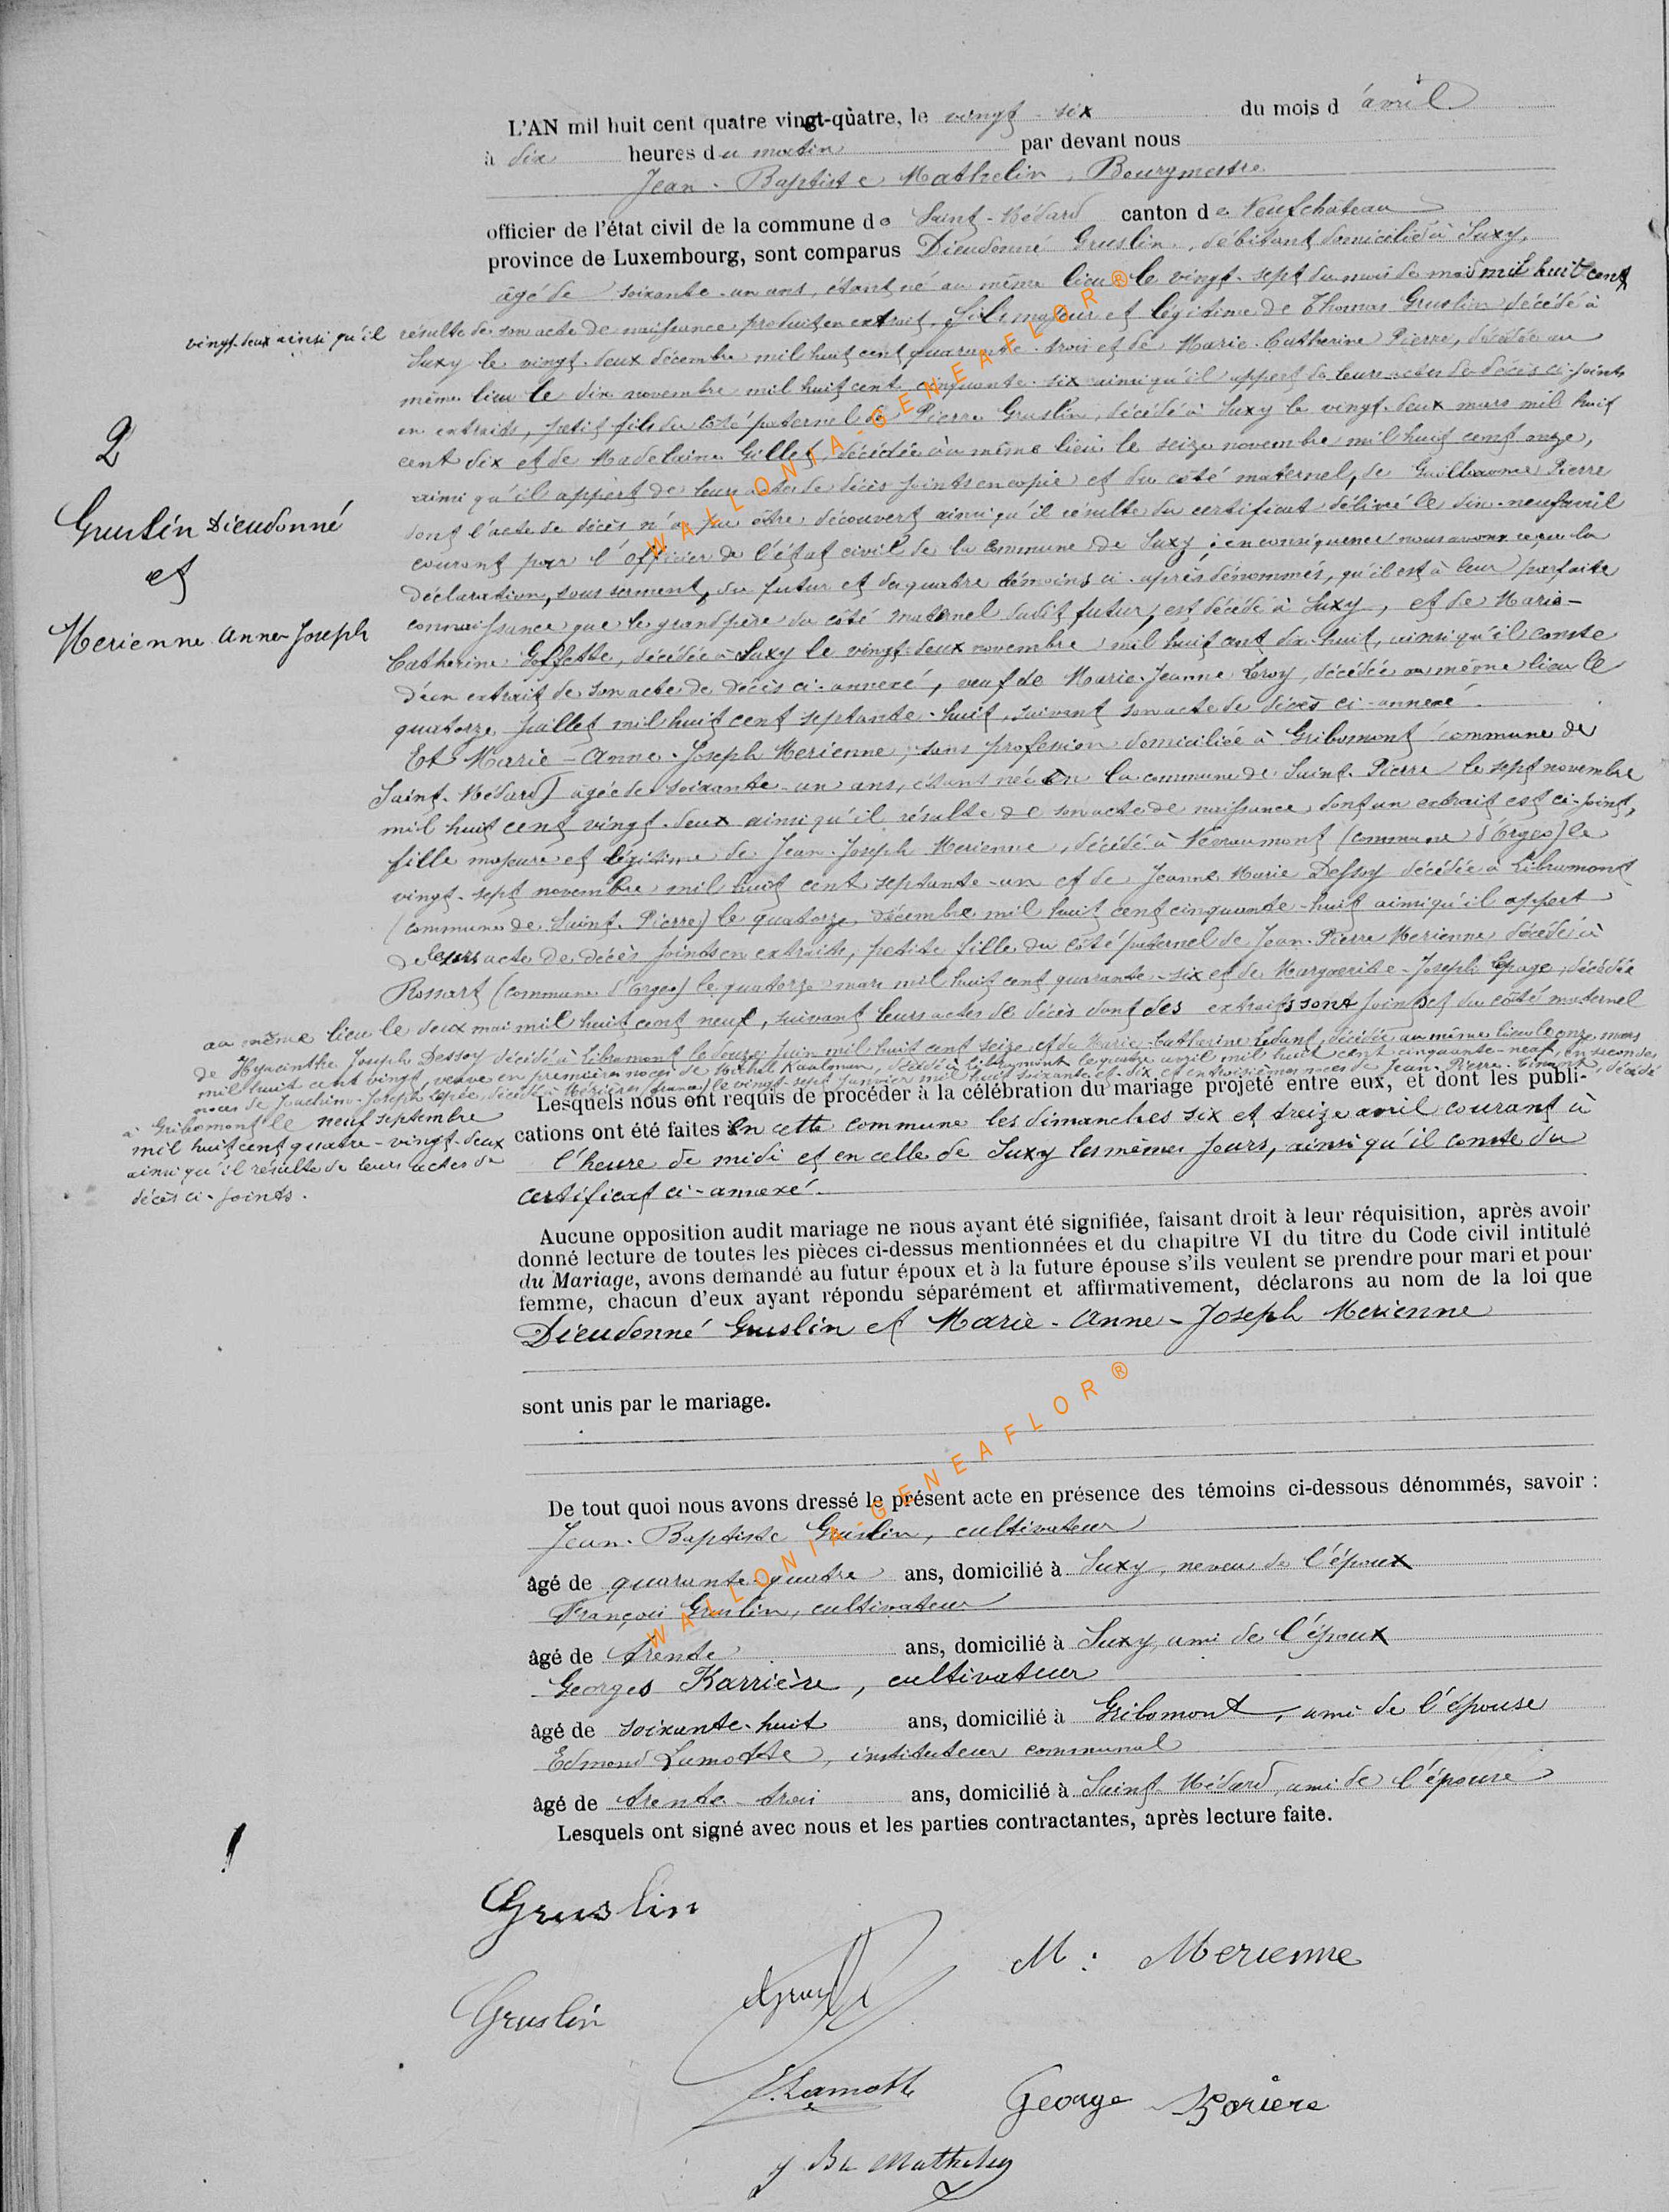 L'AN mil huit cent quatre vingt-quatre, le vingt-six du mois d'avril
à dix heures du matin par devant nous
Jean-Baptiste Mathelin, Bourgmestre
officier de l'état civil de la commune de Saint-Médard canton de Neufchâteau
province de Luxembourg, sont comparus Dieudonné Gruslin, débitant domicilié à Suxy,
âgé de soixante-un ans, étant né au même lieu le vingt-sept du mois de mai mil huit cent
vingt-deux ainsi qu'il résulte de son acte de naissance produit en extrait, fils majeur et légitime de Thomas Gruslin décédé à
Suxy le vingt-deux décembre mil huit cent quarante-trois et de Marie-Catherine Pierre, décédée au
même lieu le dix novembre mil huit cent cinquante-six ainsi qu'il appert de leurs actes de décès ci-joints
en extraits, petit fils du côté paternel de Pierre Gruslin, décédé à Suxy le vingt-deux mars mil huit
cent dix et de Madelaine Gillet, décédée au même lieu le seize novembre mil huit cent onze,
ainsi qu'il appert de leurs actes de décès joints en copie et du côté maternel, de Guillaume Pierre
dont l'acte de décès n'a pu être découvert ainsi qu'il résulte du certificat délivré le dix-neuf avril
courant par l'officier de l'état civil de la commune de Suxy; en conséquence nous avons reçu la
déclaration, sous serment, du futur et des quatre témoins ci-après dénommés, qu'il est à leur parfaite
connaissance que le grand père du côté maternel dudit futur, est décédé à Suxy, et de Marie-
Catherine Goffette, décédée à Suxy le vingt-deux novembre mil huit cent dix-huit, ainsi qu'il conste
d'un extrait de son acte de décès ci-annexé, veuf de Marie-Jeanne Leroy, décédée au même lieu le
quatorze juillet mil huit cent septante-huit, suivant son acte de décès ci-annexé.
Et Marie-Anne-Joseph Merienne, sans profession domiciliée à Gribomont (commune de
Saint-Médard) âgée de soixante-un ans, étant née en la commune de Saint-Pierre le sept novembre
mil huit cent vingt-deux ainsi qu'il résulte de son acte de naissance dont un extrait est ci-joint,
fille majeure et légitime de Jean-Joseph Merienne, décédé à Namoussart (commune d'Orgeo) le
vingt-sept novembre mil huit cent septante-un et de Jeanne Marie Dessoy décédée à Libramont
(commune de Saint-Pierre) le quatorze décembre mil huit cent cinquante-huit ainsi qu'il appert
de leurs acte de décès joints en extraits, petite fille du côté paternel de Jean-Pierre Merienne décédé à
Rossart (commune d'Orgeo) le quatorze mars mil huit cent quarante-six et de Marguerite-Joseph Lepage, décédée
au même lieu le deux mai mil huit cent neuf, suivant leurs actes de décès dont des extraits sont joints et du côté maternel
de Hyacinthe Joseph Dessoy décédé à Libramont le douze juin mil huit cent seize et de Marie-Catherine Ledant, décédée au même lieu le onze mars
mil huit cent vingt, veuve en premières noces de Michel Kaulman, décédé à Libramont le quatre avril mil huit cent cinquante-neuf, en secondes
noces de Joachim-Joseph Lepée, décédé à Mézières (france) le vingt-sept janvier mil huit soixante et dix et en troisièmes noces de Jean-Pierre, décédé
à Gribomont le neuf septembre
mil huit cent quatre-vingt-deux
ainsi qu'il résulte de leurs actes de
décès ci-joints.
2
Gruslin Dieudonné
et
Merienne Anne-Joseph
Lesquels nous ont requis de procéder à la célébration du mariage projeté entre eux, et dont les publi-
cations ont été faites en cette commune les dimanches six et treize avril courant à
l'heure de midi et en celle de Suxy les mêmes jours, ainsi qu'il conste du
certificat ci-annexé.
Aucune opposition audit mariage ne nous ayant été signifiée, faisant droit à leur réquisition, après avoir
donné lecture de toutes les pièces ci-dessus mentionnées et du chapitre VI du titre du Code civil intitulé
du Mariage, avons demandé au futur époux et à la future épouse s'ils veulent se prendre pour mari et pour
femme, chacun d'eux ayant répondu séparément et affirmativement, déclarons au nom de la loi que
Dieudonné Gruslin et Marie-Anne-Joseph Merienne
sont unis par le mariage.
De tout quoi nous avons dressé le présent acte en présence des témoins ci-dessous dénommés, savoir :
Jean-Baptiste Gruslin, cultivateur
âgé de quarante-quatre ans, domicilié à Suxy, neveu de l'époux
François Gruslin, cultivateur
âgé de trente ans, domicilié à Suxy, ami de l'époux
Georges Karrière, cultivateur
âgé de soixante-huit ans, domicilié à Gribomont, ami de l'épouse
Edmond Lamotte, instituteur communal
âgé de trente-trois ans, domicilié à Saint-Médard, ami de l'épouse
Lesquels ont signé avec nous et les parties contractantes, après lecture faite.
Gruslin
M: Merienne
Gruslin
E. Lamotte
George
J Bte Mathelin
WALLONIA-GENEAFLOR®
WALLONIA-GENEAFLOR®